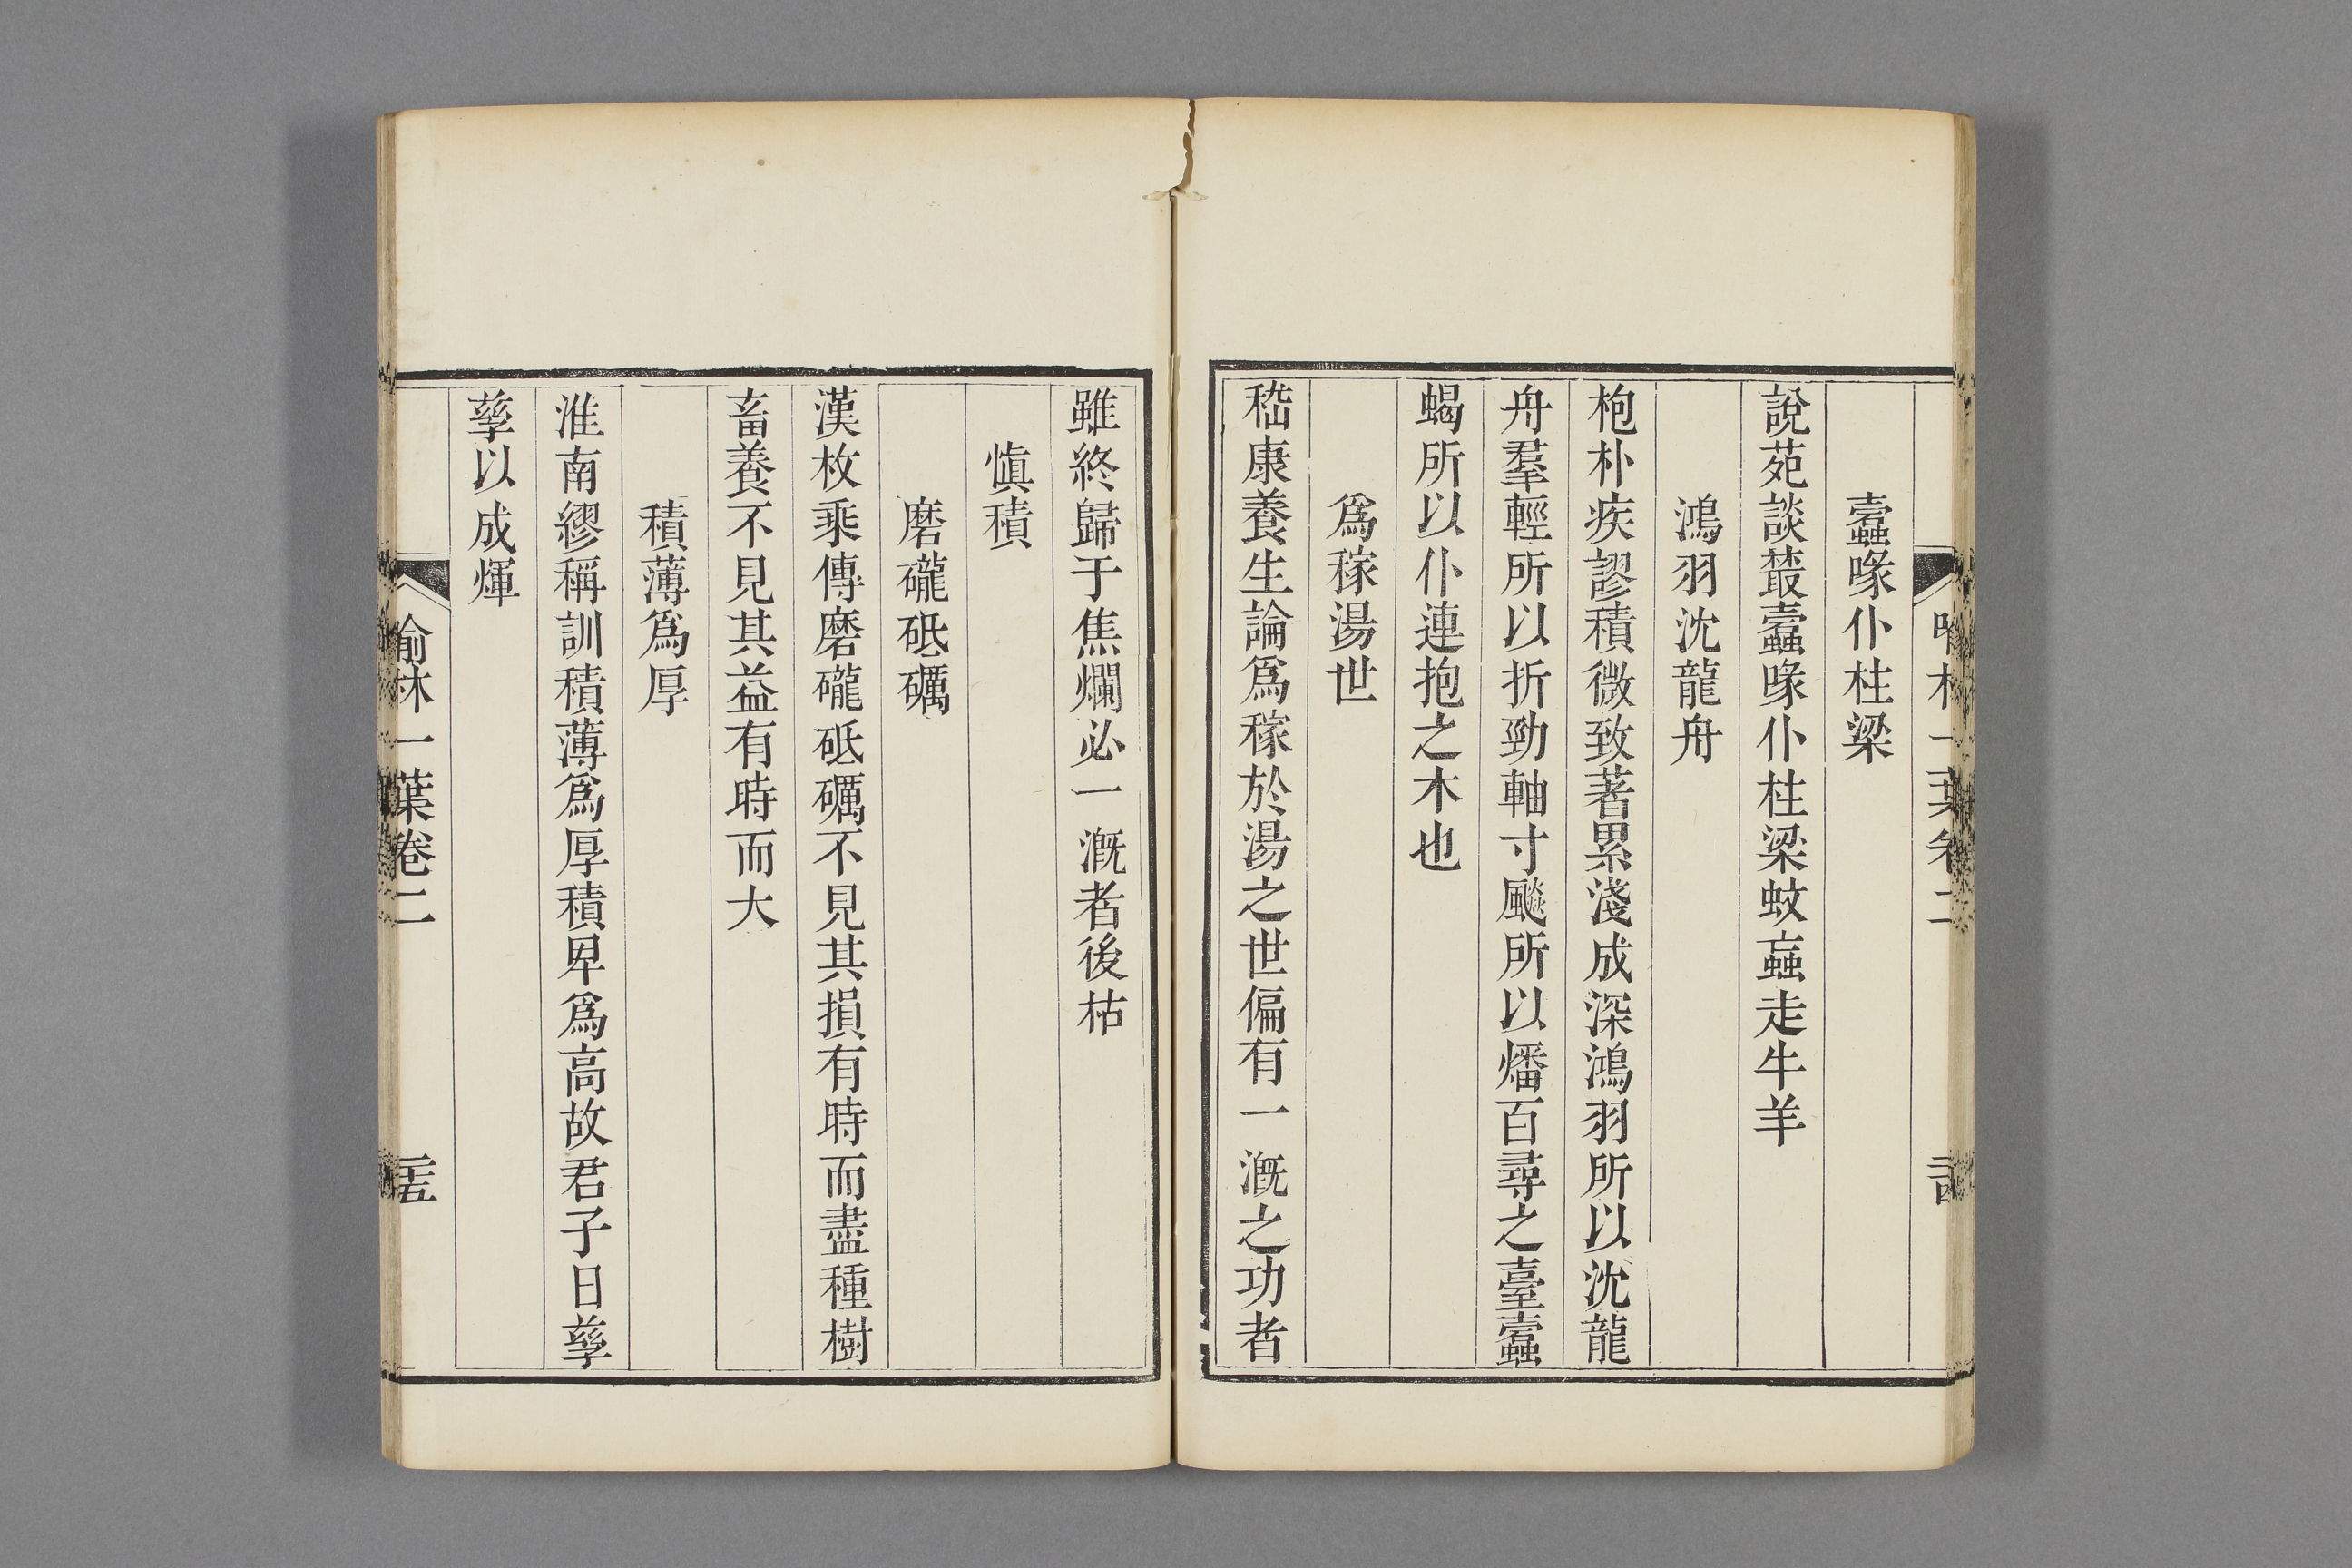 蠹喙仆柱梁
說苑談藂蠹喙仆柱梁蚊䖟走牛羊
鴻羽沈龍舟
枹朴疾謬積微致著累淺成深鴻羽所以沈龍
舟羣輕所以折勁軸寸飈所以燔百尋之臺蠹
蝎所以仆連抱之木也
爲稼湯世
嵇康養生論爲稼於湯之世偏有一溉之功者
雖終歸于焦爛必一溉者後枯
愼積
磨礲砥礪
漢枚乘傳磨礲砥礪不見其損有時而盡種樹
畜養不見其益有時而大
積薄爲厚
淮南繆稱訓積薄爲厚積卑爲高故君子日孳
孳以成煇
喻林一葉卷二